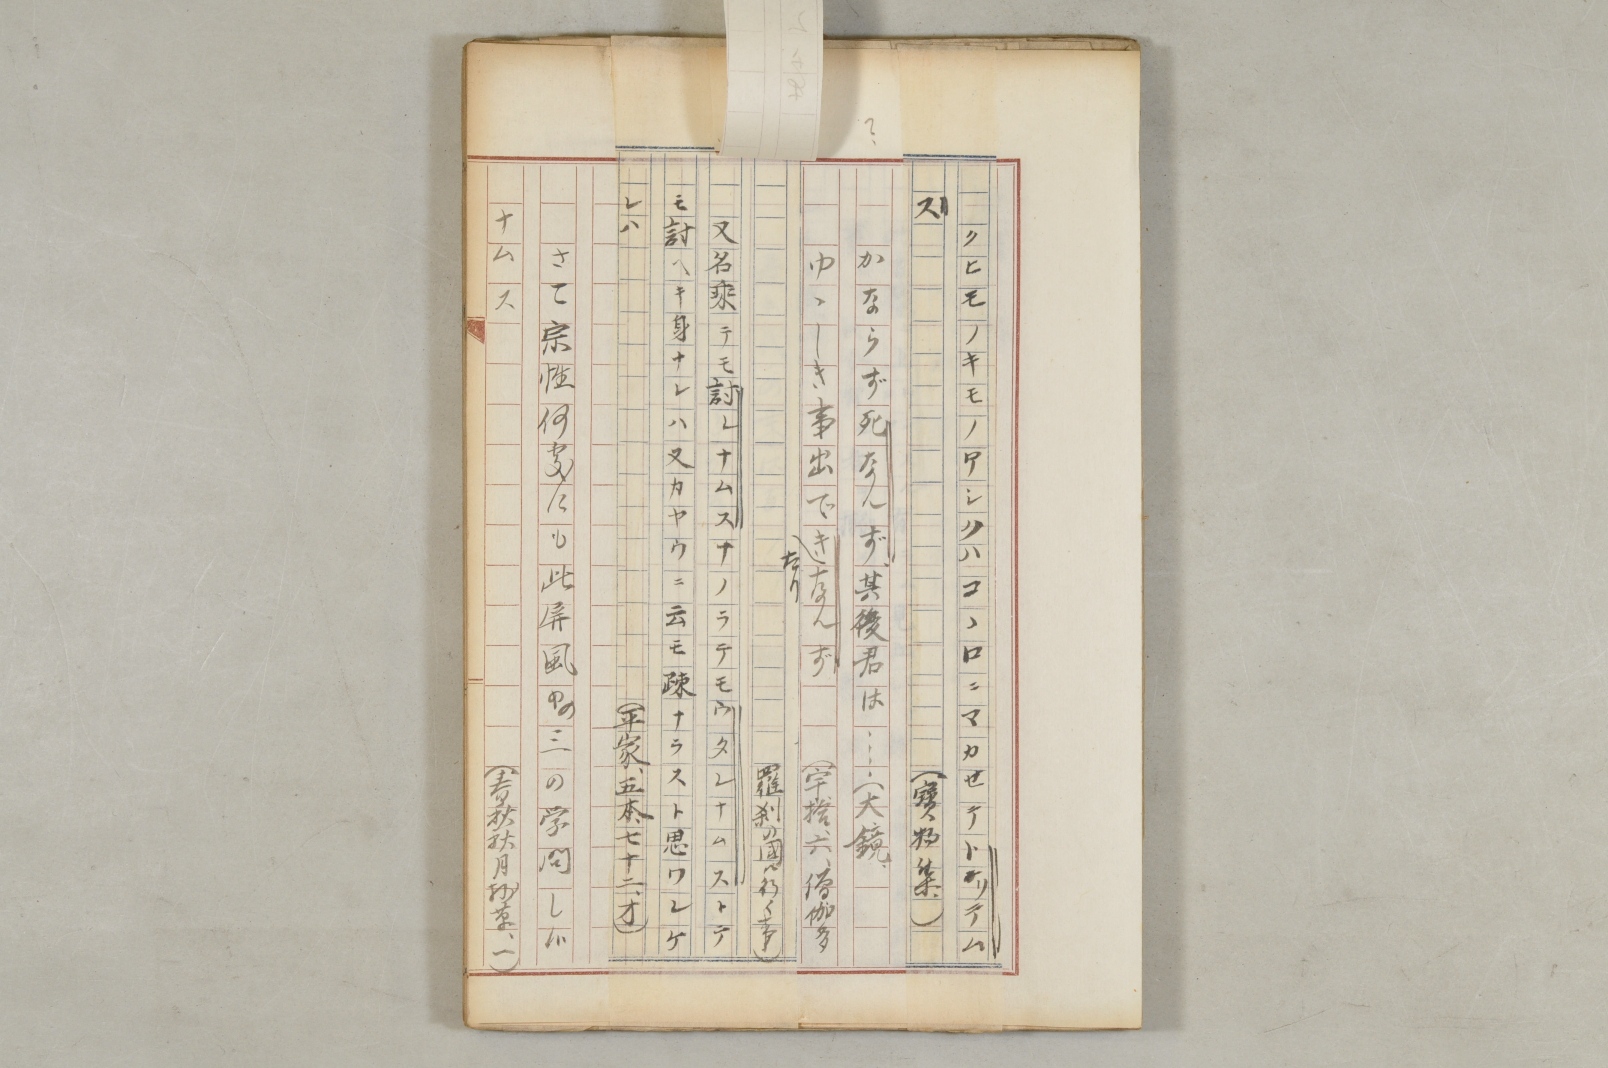 クヒモノキモノアシクハコヽロニマカセテトリテム
ズ
(寶物集、)
かならず死なんず、其後君は……(大鏡、
ゆゝしき事出できなんず
たり
(宇捨六、僧伽多
羅刹の國に行く事)
又名乘テモ討レナムスナノラテモウタレナムストテ
モ討ヘキ身ナレハ又カヤウニ云モ疎ナラスト思ワレケ
レハ
(平家、五本、七十二、オ)
さて宗性何處にも此屏風の三の学問しに
ナムス
(春秋秋月抄草、一)